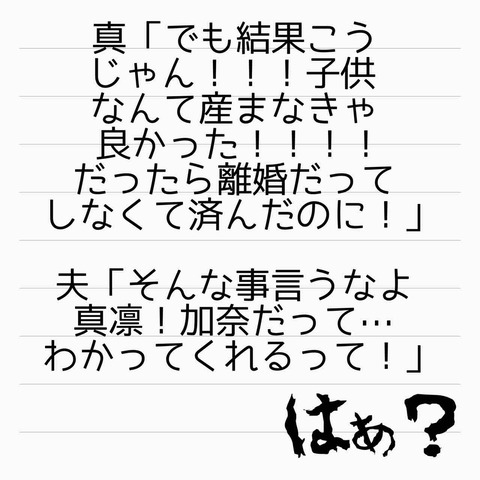 真「でも結果こう
じゃん！！！子供
なんて産まなきゃ
良かった！！！！
だったら離婚だって
しなくて済んだのに！」
夫「そんな事言うなよ
真凛！加奈だって…
わかってくれるって！」
はぁ？